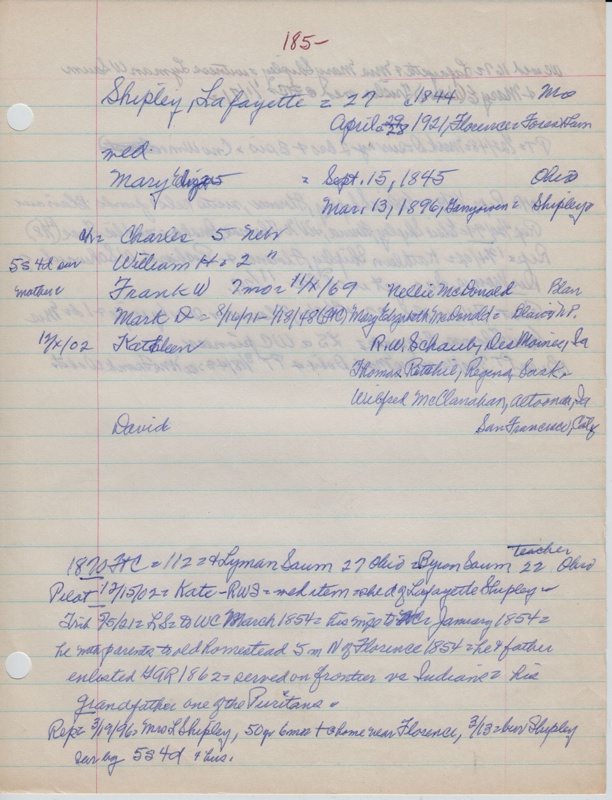 185-
Shipley, Lafayette = 27 c1844 Mo
April 29/28 1921, Florence = Forest Lawn
med.
Mary = Sept. 15, 1845 Ohio
Mar. 13, 1896, = Shipley
Ch = Charles 5 Nebr
5s 4d sur William H. 2 "
mother Frank W 7mo = 11/X/69 Nellie McDonald Blair
Mark D = 8/16/71 - 1/29/49 Mary Elizabeth McDonald = Blair
12/X/02 Kathleen R.W. Schaub, Des Moines, Ia
Thomas Ritchie, Regina, Sask.
Wilfred McClanahan, Altoona, Ia
David San Francisco, Calif
1870 FtC = 112 = & Lyman Saum 27 Ohio = Byron Saum Teacher 22 Ohio
Pilot 12/15/02 = Kate - RWS = med item = she d of Lafayette Shipley
Trib 5/5/21 = LS = to WC March 1854 = his mj to January 1854 =
he with parents to old homestead 5 m N of Florence 1854 = he & father
enlisted GAR 1862 = served on frontier vs Indians = his
grandfather one of the Puritans.
Rep = 3/19/96 = Mrs L Shipley, 50 yr 6 mos + @ home near Florence, 3/13 = bur Shipley
sur by 5s 4d & hus.